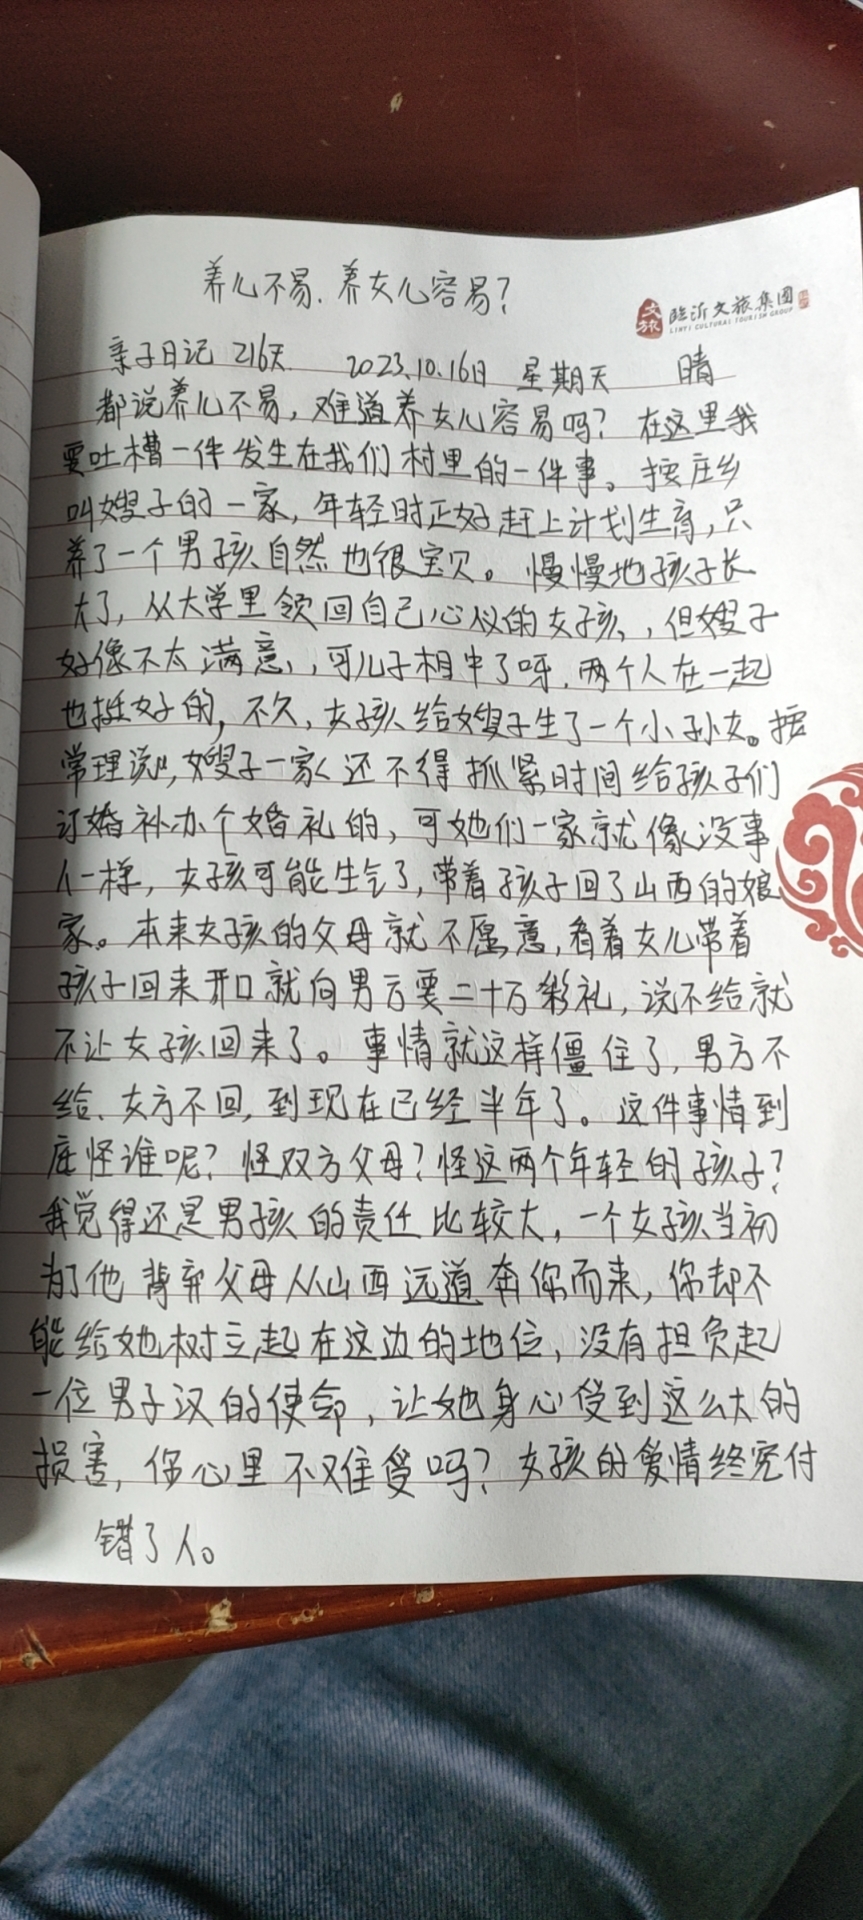 养儿不易、养女儿容易？
文旅 临沂文旅集团
LINYI CULTURAL TOURISM GROUP
亲子日记 216天 2023.10.16日 星期天 晴
都说养儿不易，难道养女儿容易吗？在这里我
要吐槽一件发生在我们村里的一件事。按庄乡
叫嫂子的一家，年轻时正好赶上计划生育，只
养了一个男孩自然也很宝贝。慢慢地孩子长
大了，从大学里领回自己心仪的女孩，但嫂子
好像不太满意，可儿子相中了呀，两个人在一起
也挺好的，不久，女孩给嫂子生了一个小孙女。按
常理说，嫂子一家还不得抓紧时间给孩子们
订婚补办个婚礼的，可她们一家就像没事
人一样，女孩可能生气了，带着孩子回了山西的娘
家。本来女孩的父母就不愿意，看着女儿带着
孩子回来开口就向男方要二十万彩礼，说不给就
不让女孩回来了。事情就这样僵住了，男方不
给、女方不回，到现在已经半年了。这件事情到
底怪谁呢？怪双方父母？怪这两个年轻的孩子？
我觉得还是男孩的责任比较大，一个女孩当初
为了他背弃父母从山西远道奔你而来，你却不
能给她树立起在这边的地位，没有担负起
一位男子汉的使命，让她身心受到这么大的
损害，你心里不难受吗？女孩的爱情终究付
错了人。